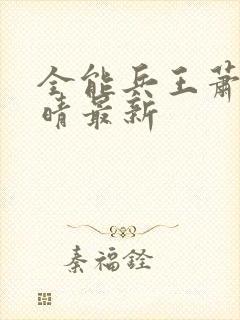 全能兵王萧
晴最新
秦福铨